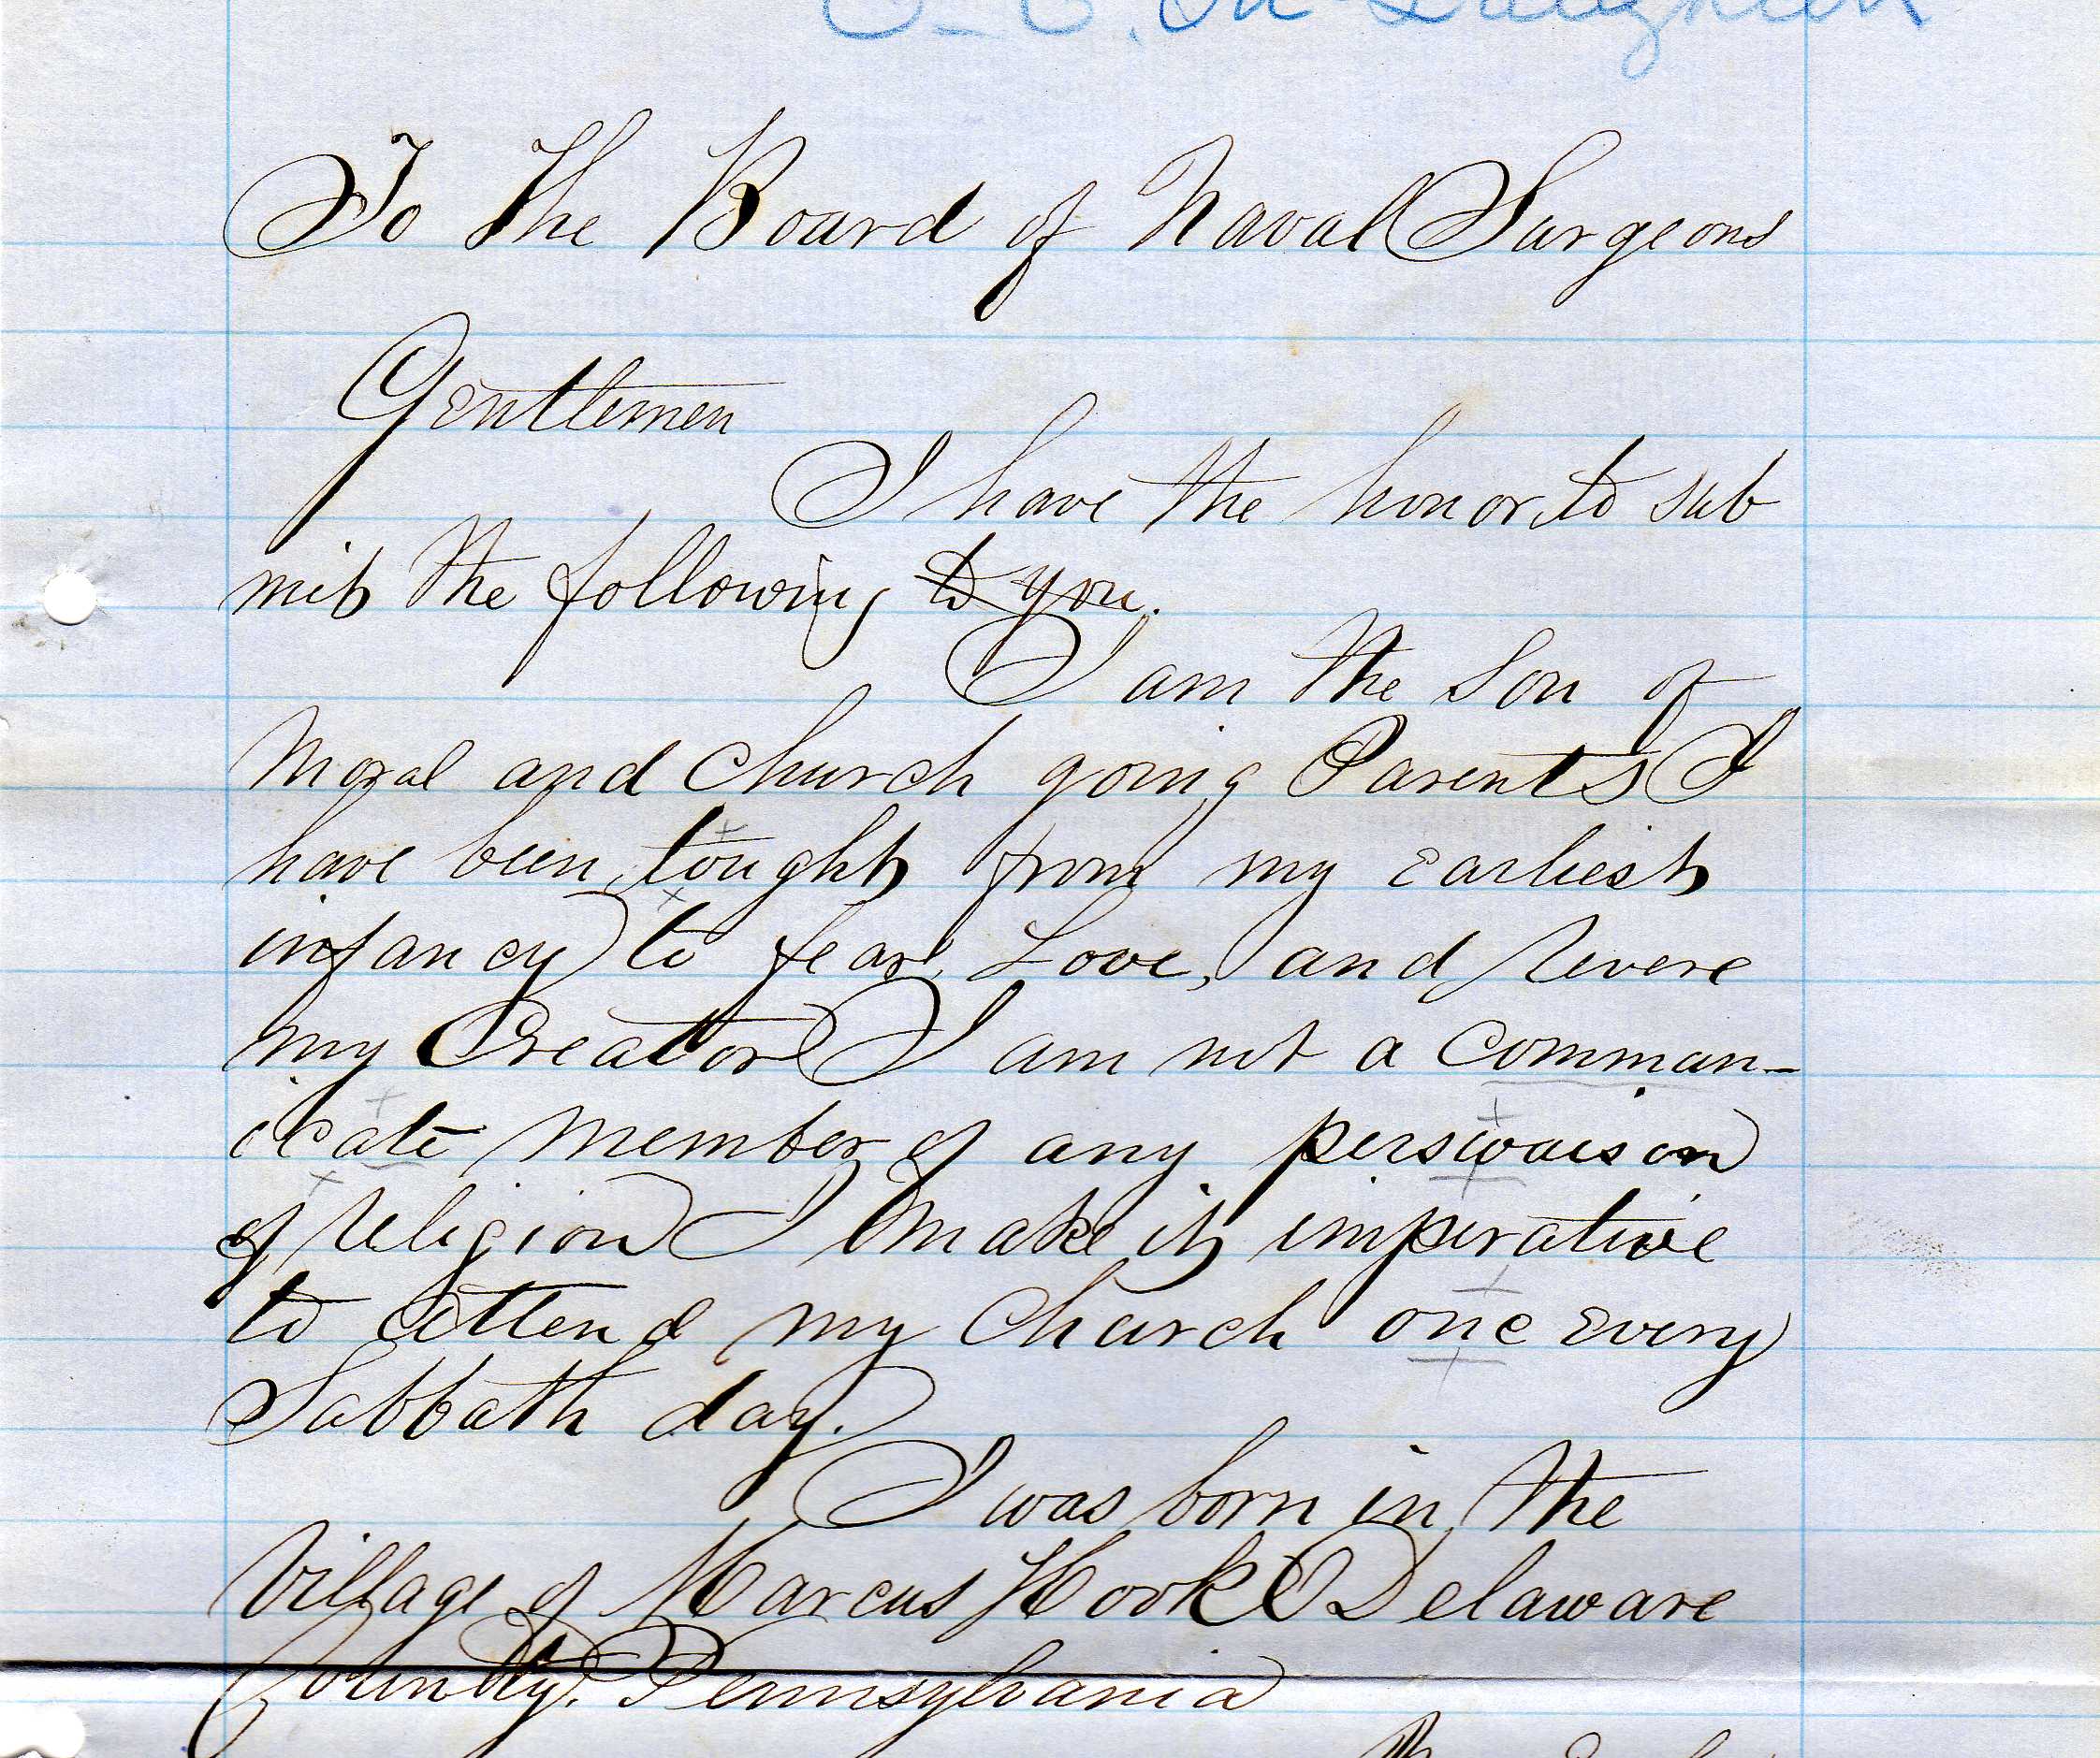 To the Board of Naval Surgeons
Gentlemen
I have the honor to sub
mit the following to you.
I am the Son of
Moral and Church going Parents I
have been tought from my earliest
infancy to fear, Love, and revere
my Creator I am not a comman-
icate member of any perswaision
of religion I make it imperative
to attend my Church one every
Sabbath day.
I was born in the
Village of Marcus Hook Delaware
County. Pennsylvania